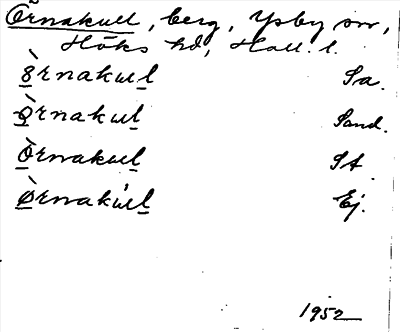 Örnakull, berg, Ysby sn,
Höks hd, Hall. l.
ö̀rnakul̲l Sa.
ö̀rnakul̲ Sand.
ö̀rnakul̲ St
ø̀rnakúl̲ Ej.
1952